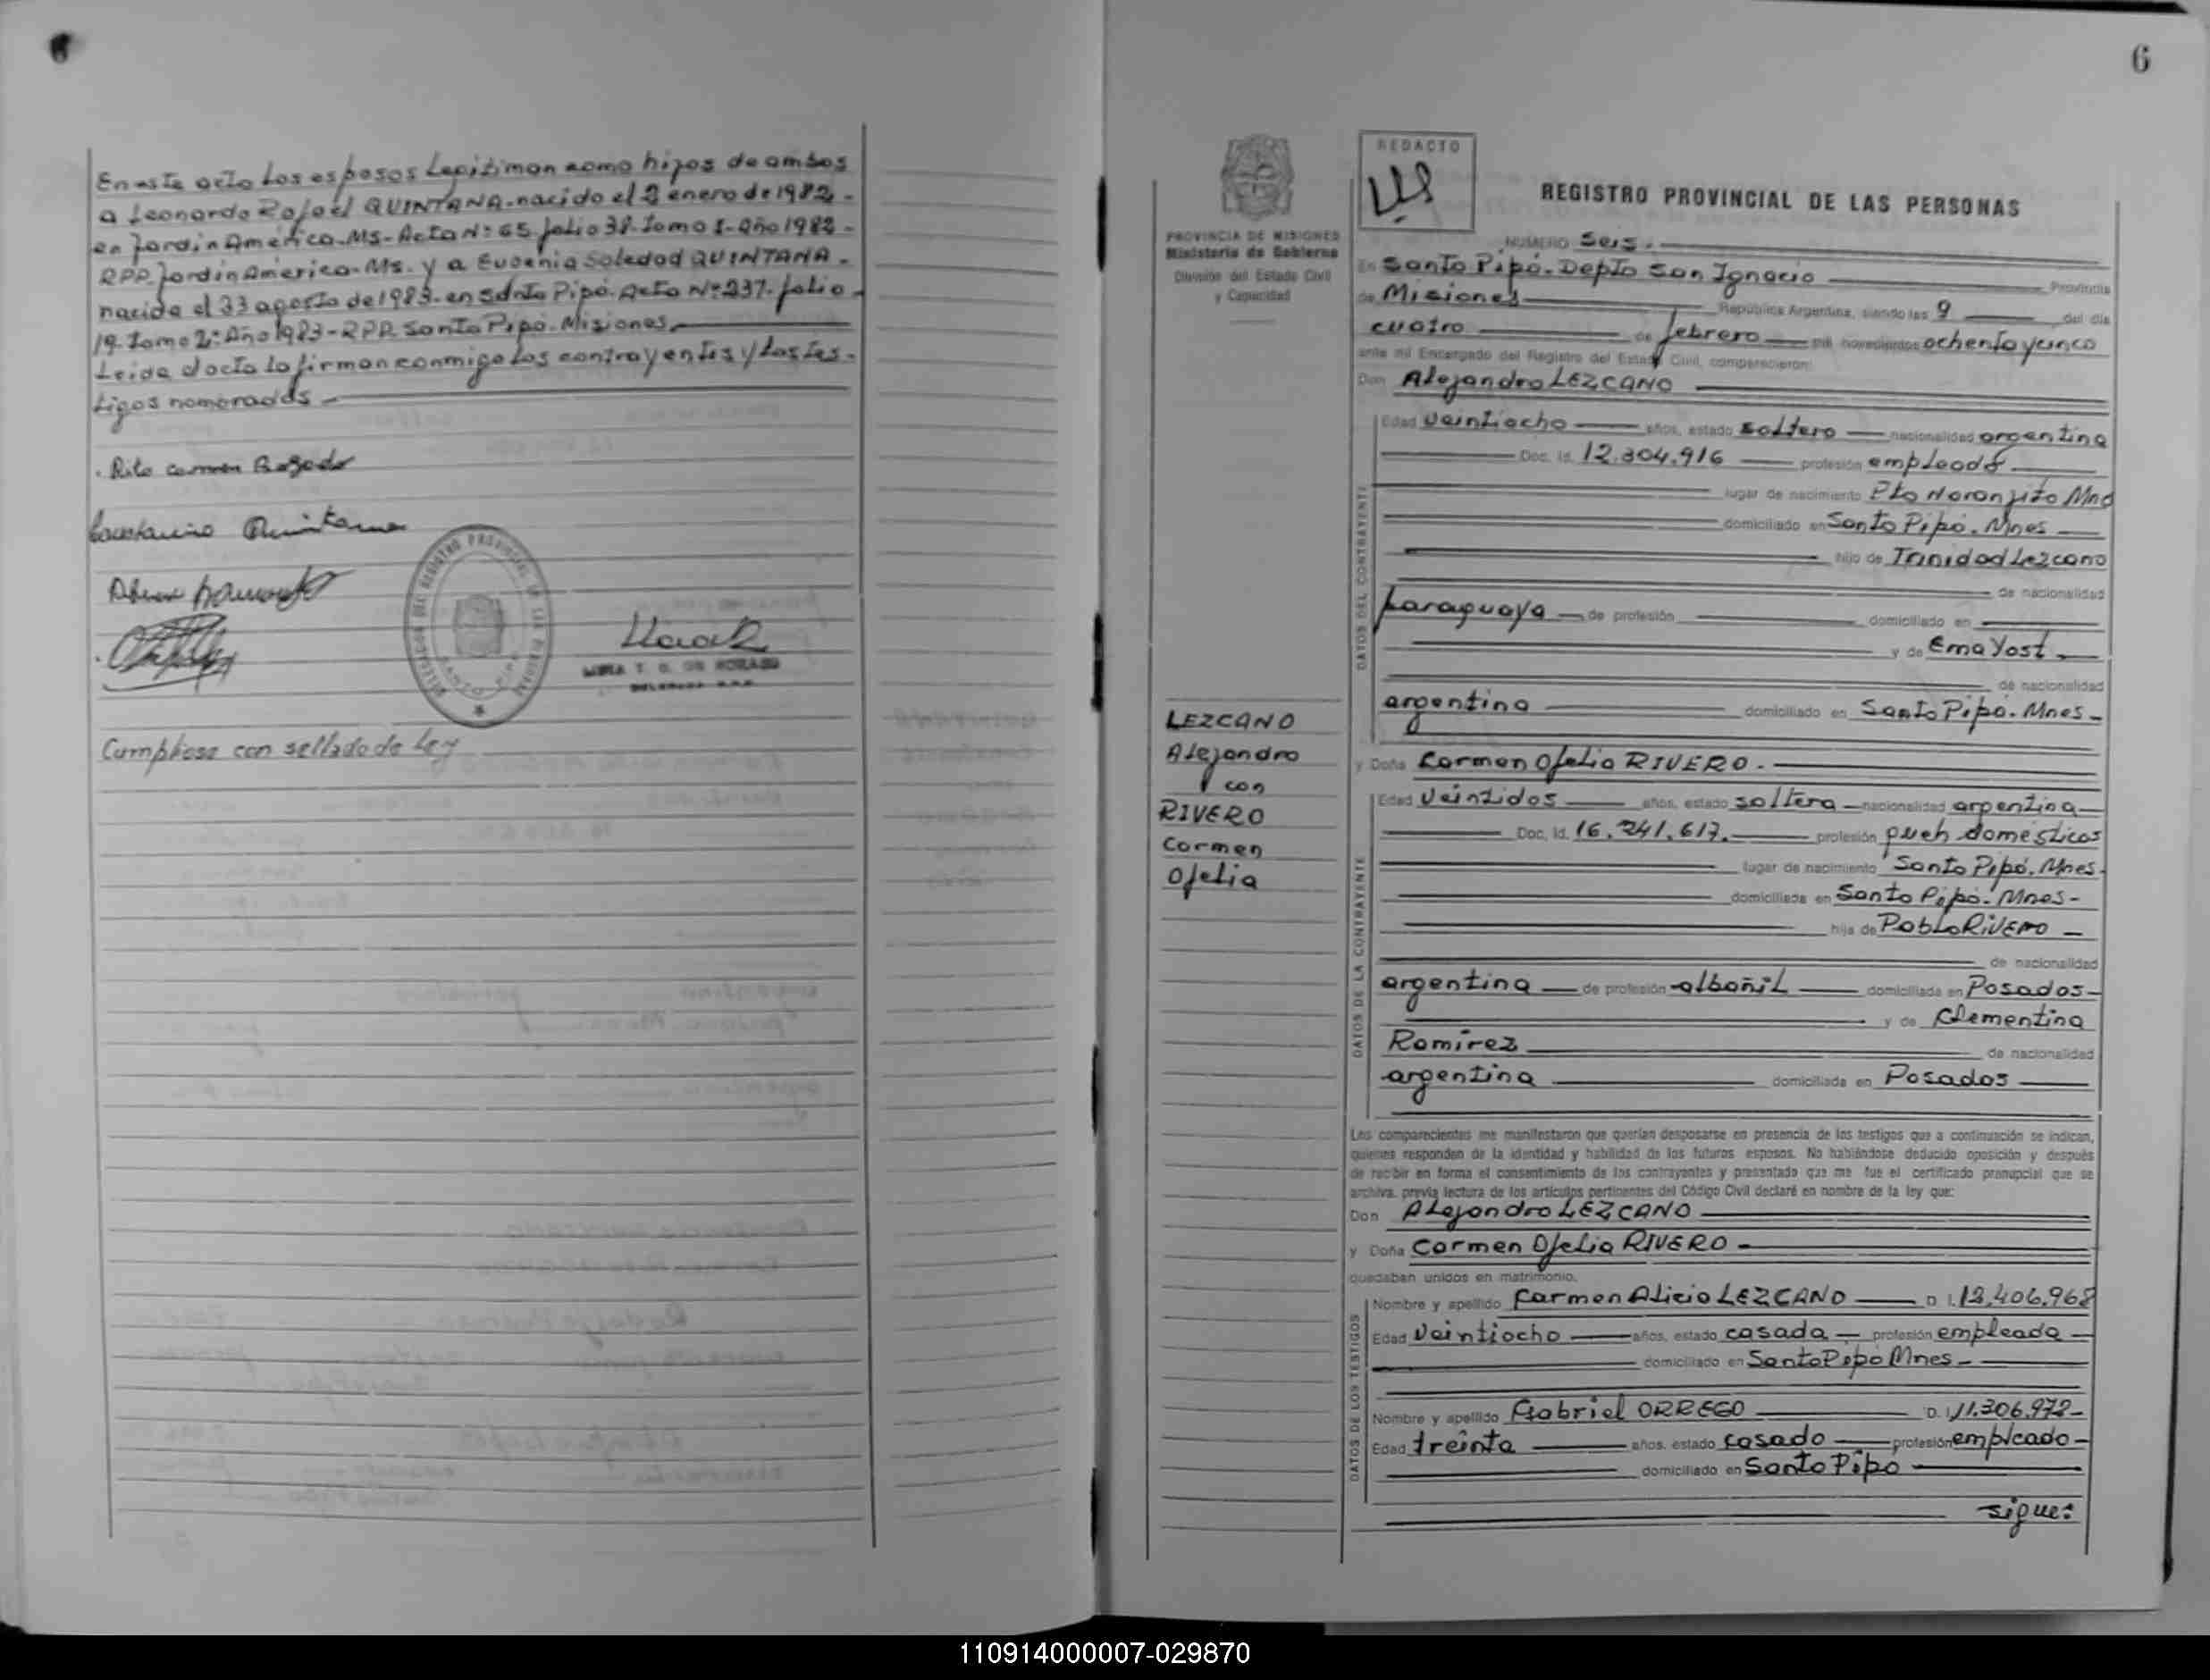 En este acto los esposos Legitiman como hijos de ambos
a Leonardo Rafael QUINTANA-nacido el 2 enero de 1982-
en Jardin America-Ms-Acta Nº 65 folio 38-tomo 1-año 1982-
RPP. Jardin America-Ms. y a Eugenia Soledad QUINTANA-
nacida el 23 agosto de 1983-en Santo Pipó. Acta Nº 237. folio
19. tomo 2º Año 1983-RPP. Santo Pipó-Misiones
Leida el acta la firman conmigo los contrayentes y los tes-
tigos nombrados
Rita Carmen
Quintana
DELEGACION DEL REGISTRO PROVINCIAL DE LAS PERSONAS
SANTO PIPO
Cumpliose con sellado de Ley
6
PROVINCIA DE MISIONES
Ministerio de Gobierno
División del Estado Civil
y Capacidad
LEZCANO
Alejandro
con
RIVERO
Carmen
Ofelia
REDACTO
REGISTRO PROVINCIAL DE LAS PERSONAS
NUMERO Seis.
En Santo Pipó-Depto San Ignacio Provincia
de Misiones República Argentina, siendo las 9 del día
cuatro de febrero mil novecientos ochenta y cinco
ante mí Encargado del Registro del Estado Civil, comparecieron:
Don Alejandro LEZCANO
DATOS DEL CONTRAYENTE
Edad Veintiocho años, estado soltero nacionalidad argentina
Doc. Id. 12.304.916 profesión empleado
lugar de nacimiento Pto Naranjito Mnes
domiciliado en Santo Pipó. Mnes
hijo de Trinidad Lezcano
de nacionalidad
paraguaya de profesión domiciliado en
y de Ema Yost
de nacionalidad
argentina domiciliado en Santo Pipó. Mnes-
y Doña Carmen Ofelia RIVERO.
DATOS DE LA CONTRAYENTE
Edad Veintidos años, estado soltera nacionalidad argentina
Doc. Id. 16.241.617. profesión queh domésticos
lugar de nacimiento Santo Pipó. Mnes.
domiciliada en Santo Pipó. Mnes-
hija de Pablo RIVERO
de nacionalidad
argentina de profesión albañil domiciliado en Posadas-
y de Clementina
Ramirez de nacionalidad
argentina domiciliada en Posadas
Los comparecientes me manifestaron que querían desposarse en presencia de los testigos que a continuación se indican,
quienes responden de la identidad y habilidad de los futuros esposos. No habiéndose deducido oposición y después
de recibir en forma el consentimiento de los contrayentes y presentado que me fue el certificado prenupcial que se
archiva, previa lectura de los artículos pertinentes del Código Civil declaré en nombre de la ley que:
Don Alejandro LEZCANO
y Doña Carmen Ofelia RIVERO-
quedaban unidos en matrimonio.
DATOS DE LOS TESTIGOS
Nombre y apellido Carmen Alicia LEZCANO D. I. 12.406.968
Edad Veintiocho años, estado casada profesión empleada
domiciliado en Santo Pipó Mnes-
Nombre y apellido Gabriel ORREGO D. I. 11.306.972-
Edad treinta años, estado casado profesión empleado-
domiciliado en Santo Pipó
sigue:
110914000007-029870